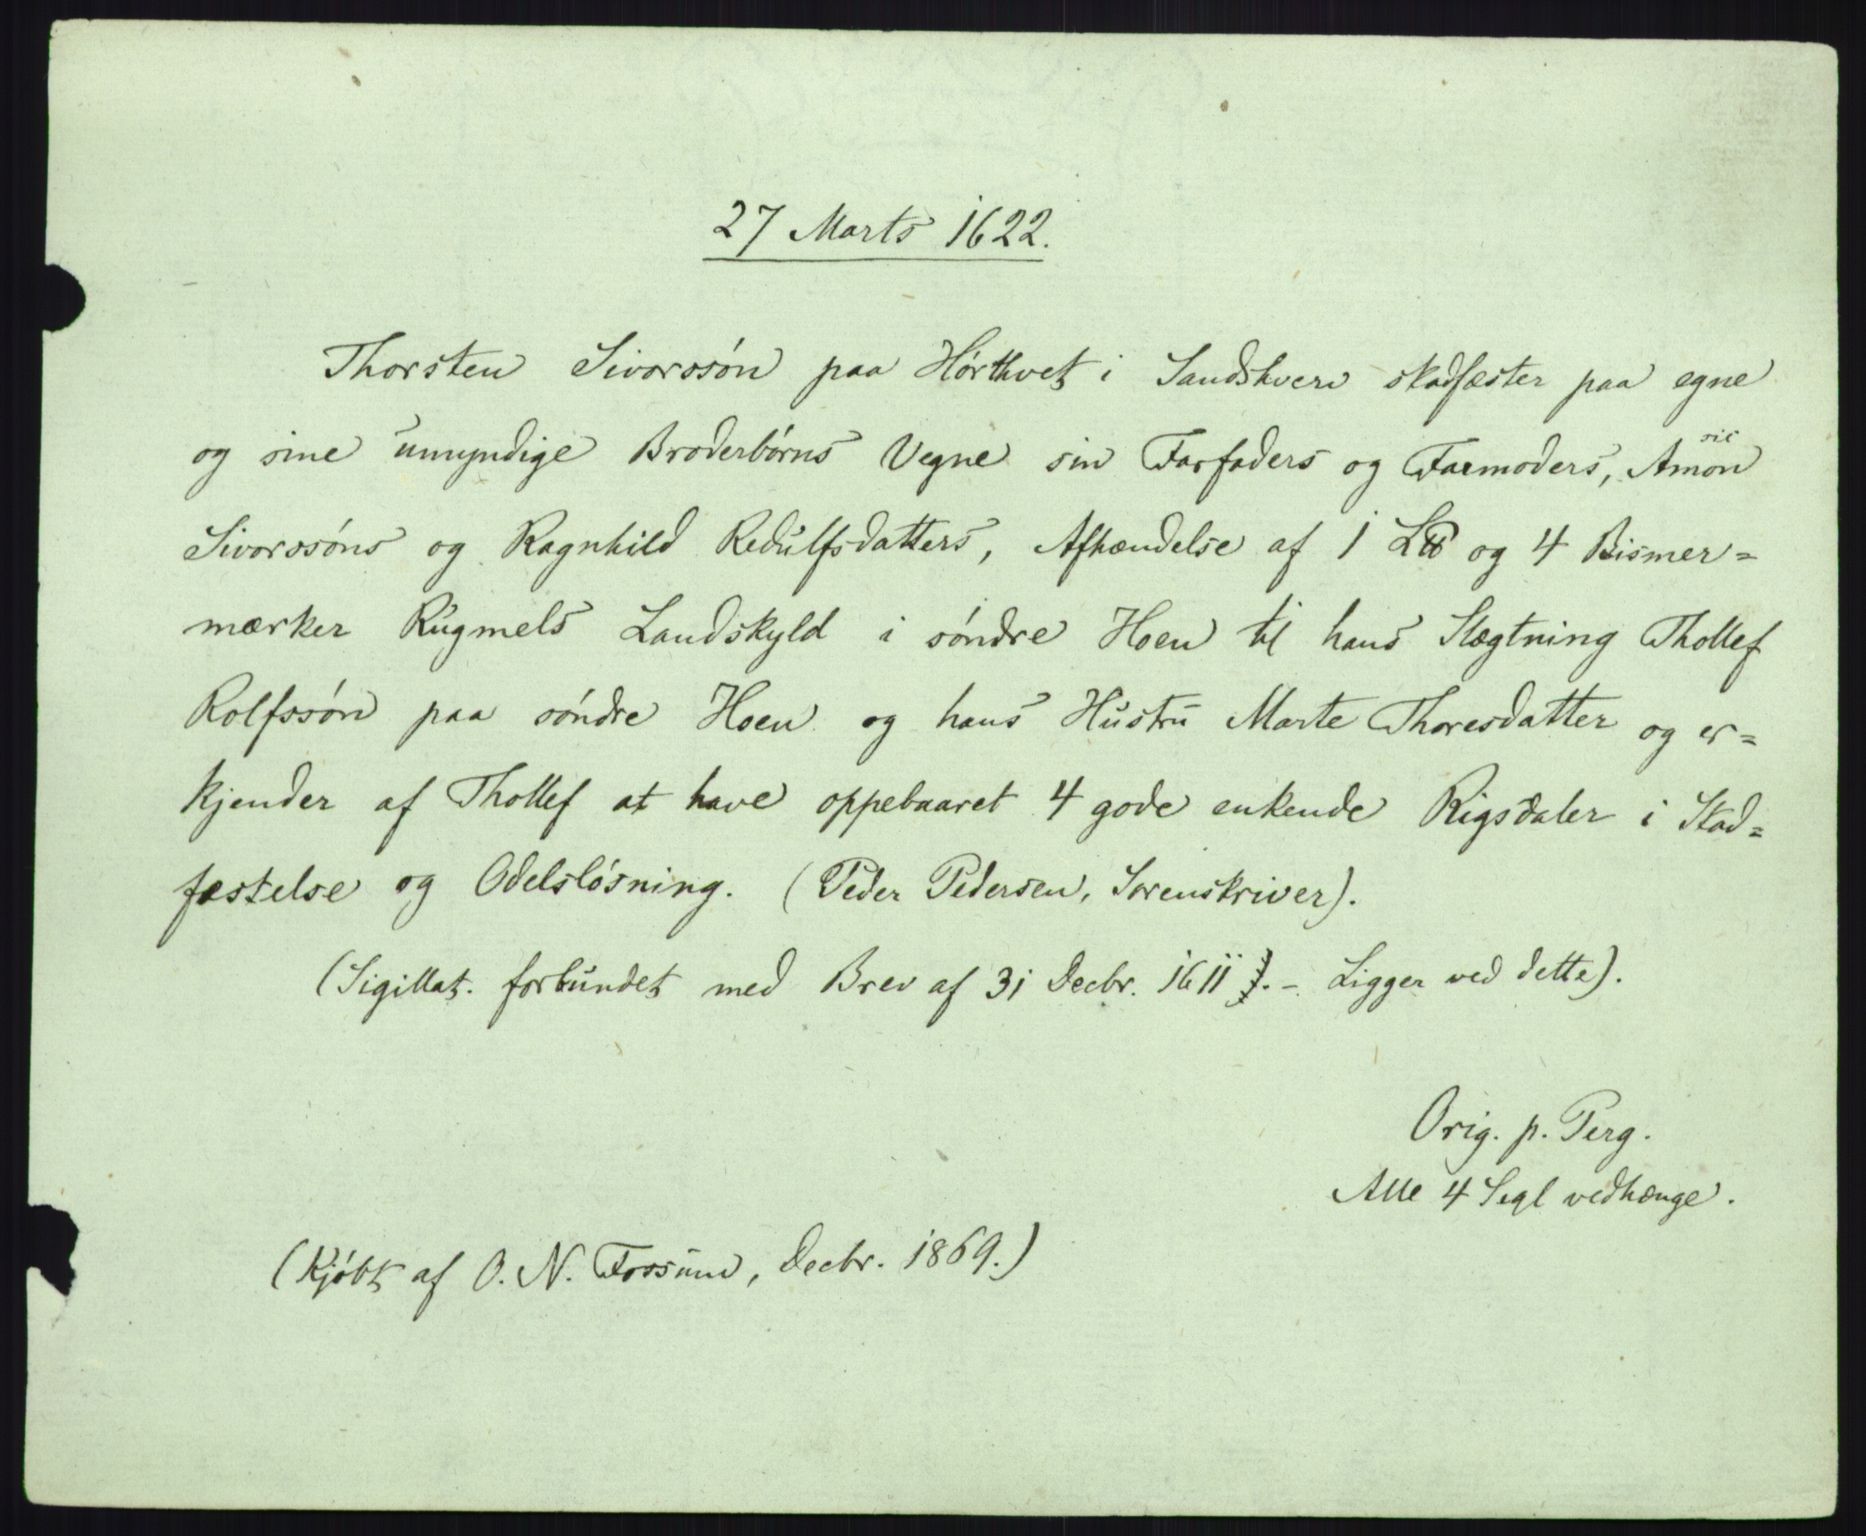 27 Marts 1622.
Thorsten Sivorssön paa Hörthvet i Sandshverv stadfæster paa egne
og sine umyndige Broderbörns Vegne sin Farfaders og Farmoders, Amon (sic)
Sivorssöns og Ragnhild Redulfsdatters, Afhændelse af 1 L℔ og 4 Bismer=
mærker Rugmels Landskyld i söndre Hoen til hans Slægtning Thollef
Rolfssön paa söndre Hoen og hans Hustru Marte Thoresdatter og er=
kjender af Thollef at have oppebaaret 4 gode enkende Rigsdaler i Stad=
fæstelse og Odelslösning. (Peder Pedersen, Sorenskriver).
(Sigillat. forbundet med Brev af 31 Decbr. 1611. – Ligger ved dette).
Orig. p. Perg.
Alle 4 Segl vedhænge.
(Kjöbt af O. N. Fossum, Decbr. 1869.)